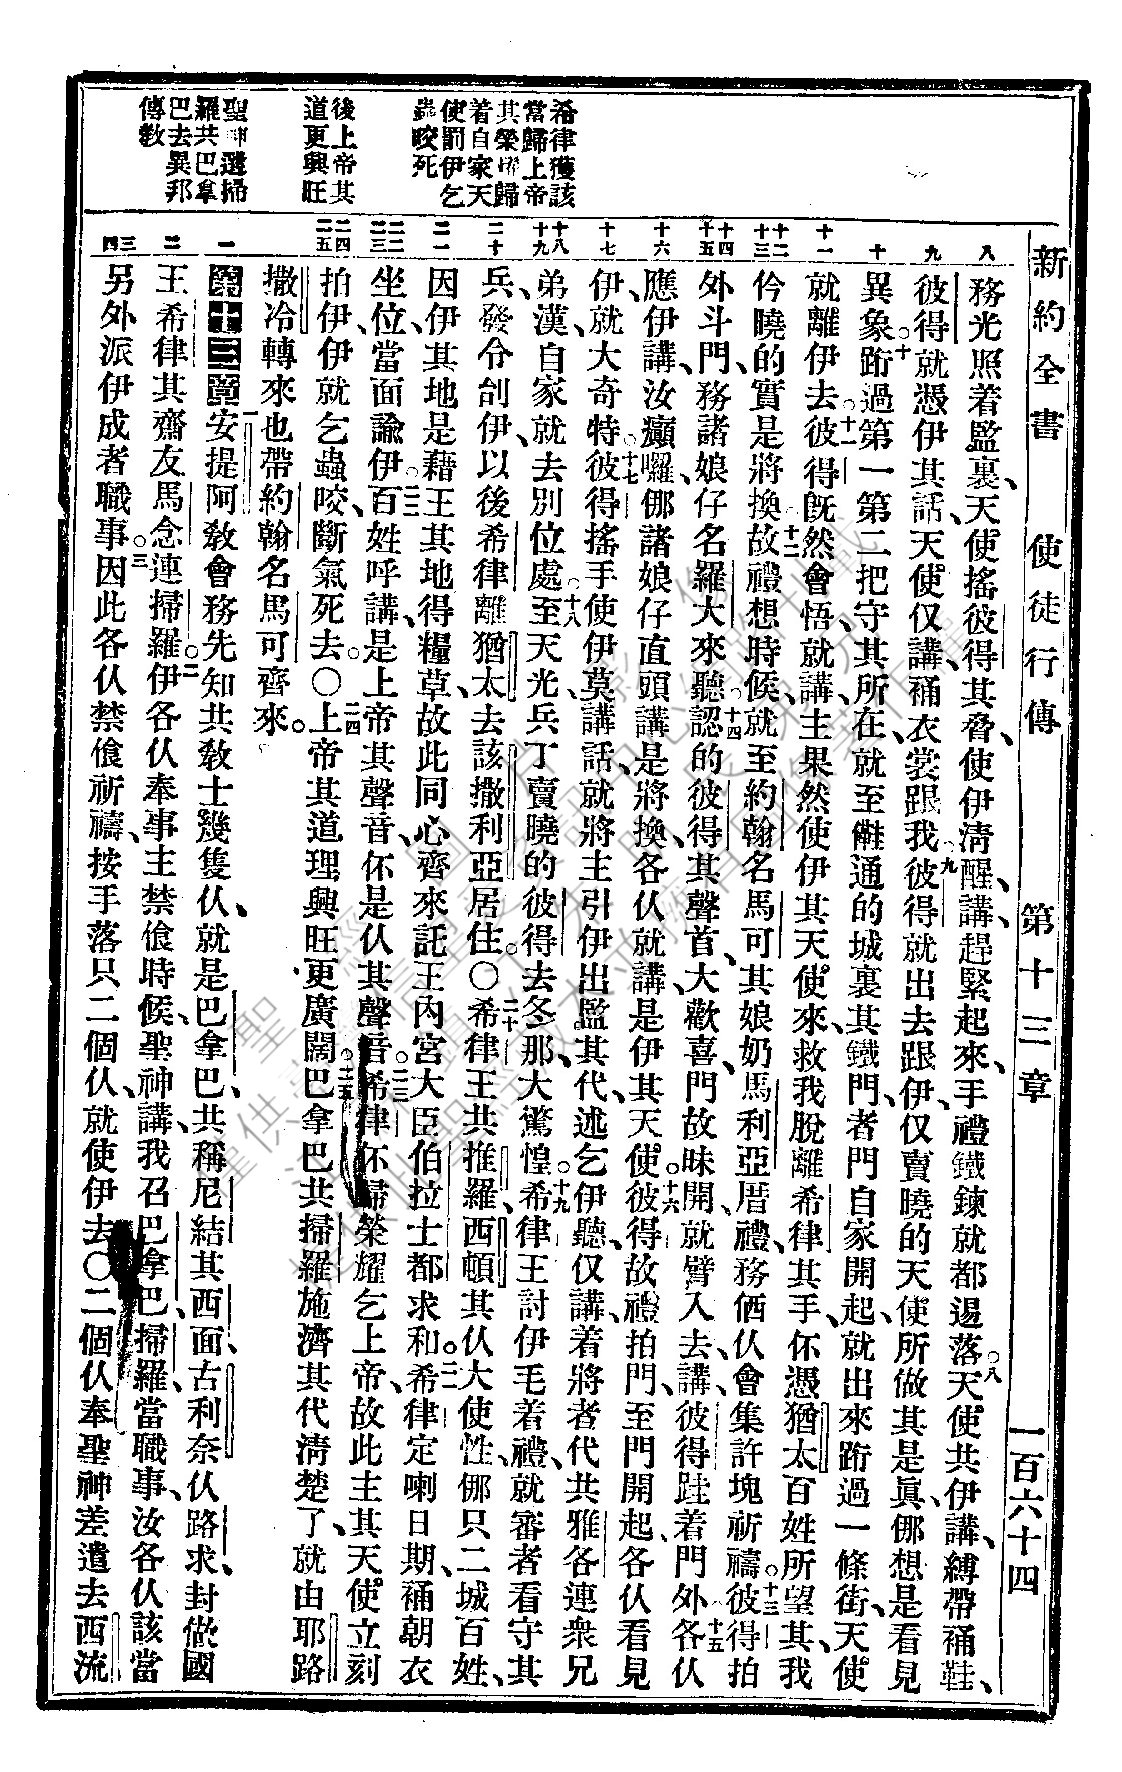 新約全書 使徒行傳 第十三章 一百六十四
希律獲該
當歸上帝
其榮耀歸
着自家天
使罰伊乞
蟲咬死
後上帝其
道更興旺
聖神選掃
羅共巴拿
巴去異邦
傳教
八
九
十
十一
十二
十三
十四
十五
十六
十七
十八
十九
二十
二一
二二
二三
二四
二五
一
二
三
四
務光照着監裏、天使搖彼得其脅、使伊清醒、講趕緊起來、手禮鐵鍊就都逷落。八天使共伊講、縛帶𧙕鞋、
彼得就憑伊其話、天使仅講、𧙕衣裳跟我。九彼得就出去跟伊、仅賣曉的天使所做其是眞、㑚想是看見
異象。十跔過第一第二把守其所在、就至𨅝通的城裏其鐵門、者門自家開起、就出來跔過一條街、天使
就離伊去。十一彼得旣然會悟、就講、主果然使伊其天使來、救我脫離希律其手、伓憑猶太百姓所望其、我
仱曉的實是將換。十二故禮想時候、就至約翰名馬可其娘奶馬利亞厝禮、務価仈會集許塊祈禱。十三彼得拍
外斗門、務諸娘仔名羅大來聽。十四認的彼得其聲首、大歡喜、門故昧開、就躄入去講、彼得跬着門外。十五各仈
應伊講、汝癲囉、㑚諸娘仔直頭講是將換、各仈就講、是伊其天使。十六彼得故禮拍門、至門開起、各仈看見
伊、就大奇特。十七彼得搖手使伊莫講話、就將主引伊出監其代、述乞伊聽、仅講、着將者代共雅各連衆兄
弟漢、自家就去別位處。十八至天光、兵丁賣曉的彼得去冬那、大驚惶。十九希律王討伊毛着禮、就審者看守其
兵、發令创伊、以後希律離猶太、去該撒利亞居住。○二十希律王共推羅西頓其仈大使性、㑚只二城百姓、
因伊其地是藉王其地得糧草、故此同心齊來、託王內宮大臣伯拉士都求和。二一希律定喇日期、𧙕朝衣
坐位、當面諭伊。二二百姓呼講、是上帝其聲音、伓是仈其聲音。二三希律伓歸榮耀乞上帝、故此主其天使立刻
拍伊、伊就乞蟲咬、斷氣死去。○二四上帝其道理興旺更廣闊。二五巴拿巴共掃羅施濟其代清楚了、就由耶路
撒冷轉來、也帶約翰名馬可齊來。
第十三章 一安提阿教會務先知共教士幾隻仈、就是巴拿巴、共稱尼結其西面、古利奈仈路求、封做國
王希律其齋友馬念、連掃羅。二伊各仈奉事主禁飡時候、聖神講、我召巴拿巴、掃羅當職事、汝各仈該當
另外派伊成者職事。三因此各仈禁飡祈禱、按手落只二個仈、就使伊去。○四二個仈奉聖神差遣、去西流